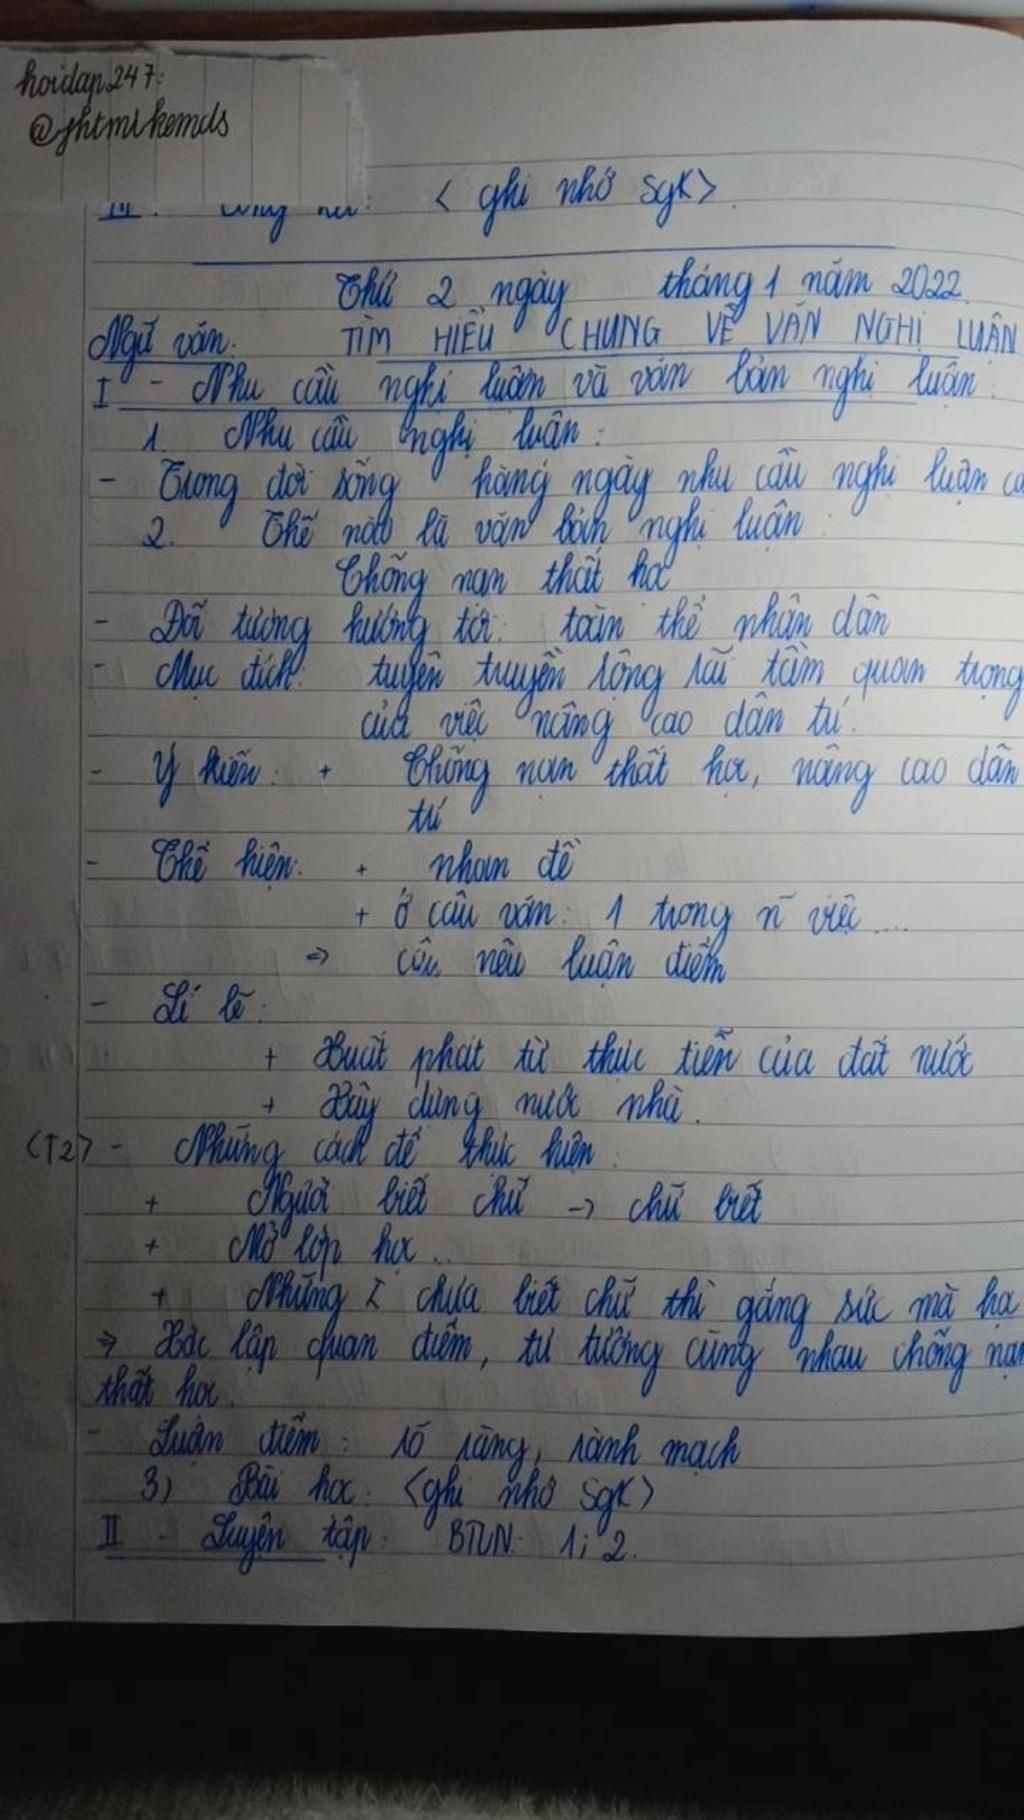 hoidap247:
@jhtmlkemds
III. <ghi nhớ sgk>.
Thứ 2 ngày tháng 1 năm 2022.
Ngữ văn: TÌM HIỂU CHUNG VỀ VĂN NGHỊ LUẬN
I - Nhu cầu nghị luận và văn bản nghị luận:
1. Nhu cầu nghị luận:
- Trong đời sống hàng ngày nhu cầu nghị luận
2. Thế nào là văn bản nghị luận:
Chống nạn thất học
- Đối tượng hướng tới: toàn thể nhân dân
- Mục đích: tuyên truyền rộng rãi tầm quan trọng
của việc nâng cao dân trí.
- Ý kiến: + Chống nạn thất học, nâng cao dân
trí
- Thể hiện: + nhan đề
+ Ở câu văn: 1 trong n~ việc ....
=> câu nêu luận điểm
- Lí lẽ:
+ Xuất phát từ thực tiễn của đất nước
+ Xây dựng nước nhà.
(T2) - Những cách để thực hiện:
+ Người biết chữ -> chữ biết
+ Mở lớp học ...
+ Những chưa biết chữ thì gắng sức mà học
=> Xác lập quan điểm, tư tưởng cùng nhau chống nạn
thất học.
- Luận điểm: rõ ràng, rành mạch
3) Bài học: <ghi nhớ sgk>
II - Luyện tập: BTVN: 1; 2.